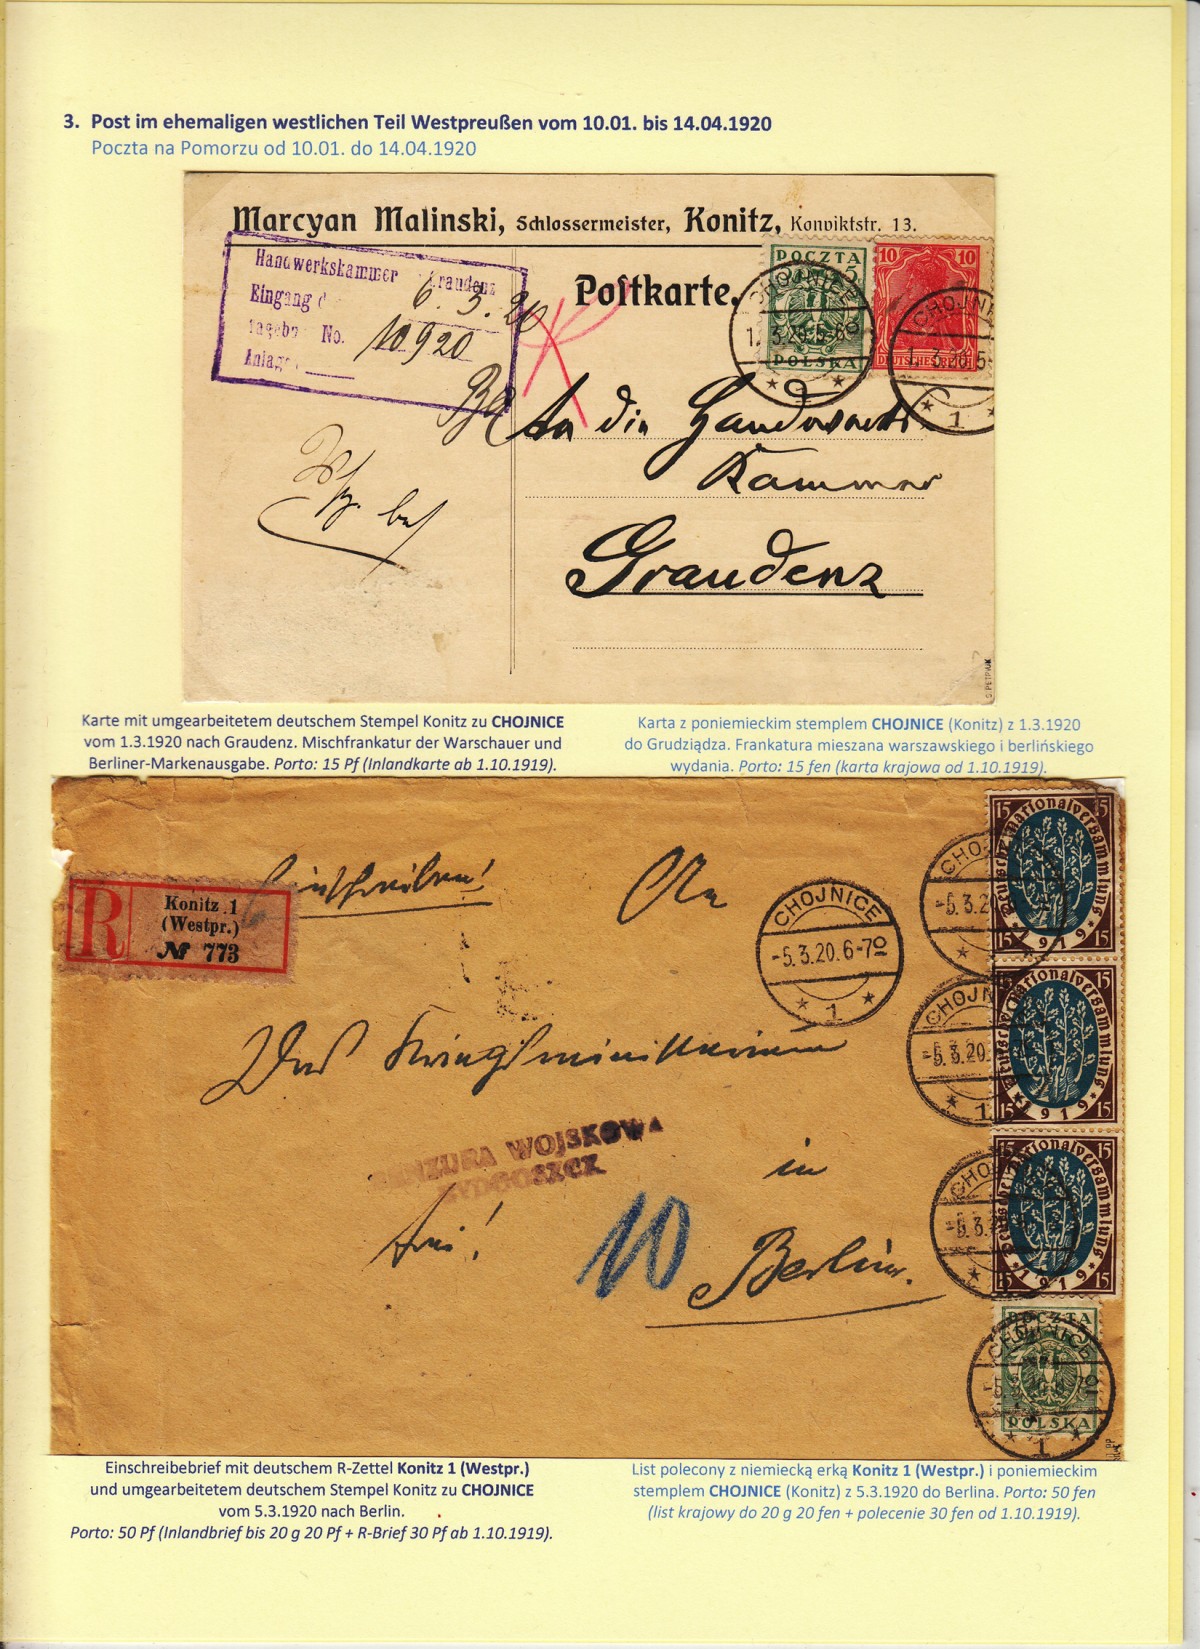 3. Post im ehemaligen westlichen Teil Westpreußen vom 10.01. bis 14.04.1920
Poczta na Pomorzu od 10.01. do 14.04.1920
Marcyan Malinski, Schlossermeister, Konitz, Konviktstr. 13.
Handwerkskammer Graudenz
Eingang d
6. 3. 20
No. 10920
Anlage
Postkarte.
POCZTA
5
POLSKA
10 10
DEUTSCHES REICH
CHOJNICE
1. 3. 20. 5-6
1
CHOJNI
1. 3. 20. 5-
1
An die Handwerks
Kammer
Graudenz
S. PETRIUK
Karte mit umgearbeitetem deutschem Stempel Konitz zu CHOJNICE
vom 1.3.1920 nach Graudenz. Mischfrankatur der Warschauer und
Berliner-Markenausgabe. Porto: 15 Pf (Inlandkarte ab 1.10.1919).
Karta z poniemieckim stemplem CHOJNICE (Konitz) z 1.3.1920
do Grudziądza. Frankatura mieszana warszawskiego i berlińskiego
wydania. Porto: 15 fen (karta krajowa od 1.10.1919).
R
Konitz 1
(Westpr.)
№ 773
Einschreiben!
An
CHOJNICE
-5.3.20.6-70
1
Das Kriegsministerium
in
Berlin.
Frei!
CENZURA WOJSKOWA
BYDGOSZCZ
10
15 15
Deutsche Nationalversammlung
1919
15 15
CHOJ
-5.3.20
15 15
Deutsche Nationalversammlung
1919
15 15
CHOJN
-5.3.20.
1
15 15
Deutsche Nationalversammlung
1919
15 15
CHOJ
-5.3.20
POCZTA
5
POLSKA
CHOJNICE
1
Einschreibebrief mit deutschem R-Zettel Konitz 1 (Westpr.)
und umgearbeitetem deutschem Stempel Konitz zu CHOJNICE
vom 5.3.1920 nach Berlin.
Porto: 50 Pf (Inlandbrief bis 20 g 20 Pf + R-Brief 30 Pf ab 1.10.1919).
List polecony z niemiecką erką Konitz 1 (Westpr.) i poniemieckim
stemplem CHOJNICE (Konitz) z 5.3.1920 do Berlina. Porto: 50 fen
(list krajowy do 20 g 20 fen + polecenie 30 fen od 1.10.1919).